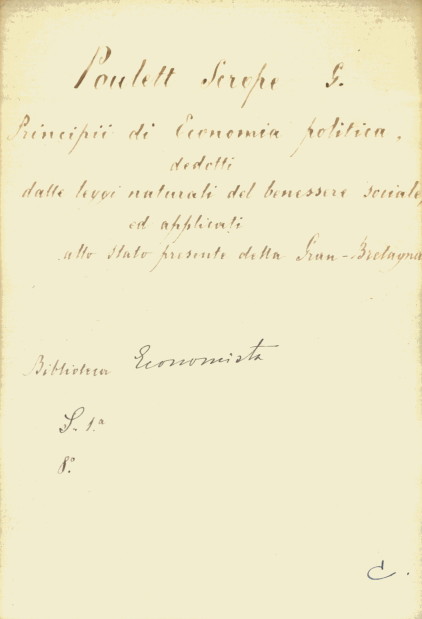 Poulett Scrope G.
Principii di Economia politica,
dedotti
dalle leggi naturali del benessere sociale,
ed applicati
allo stato presente della Gran-Bretagna
Biblioteca Economista
S. 1.a
8.°
C.